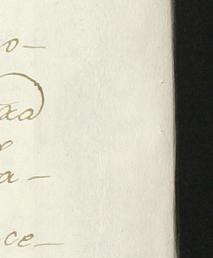 o-
xa
a-
ce-